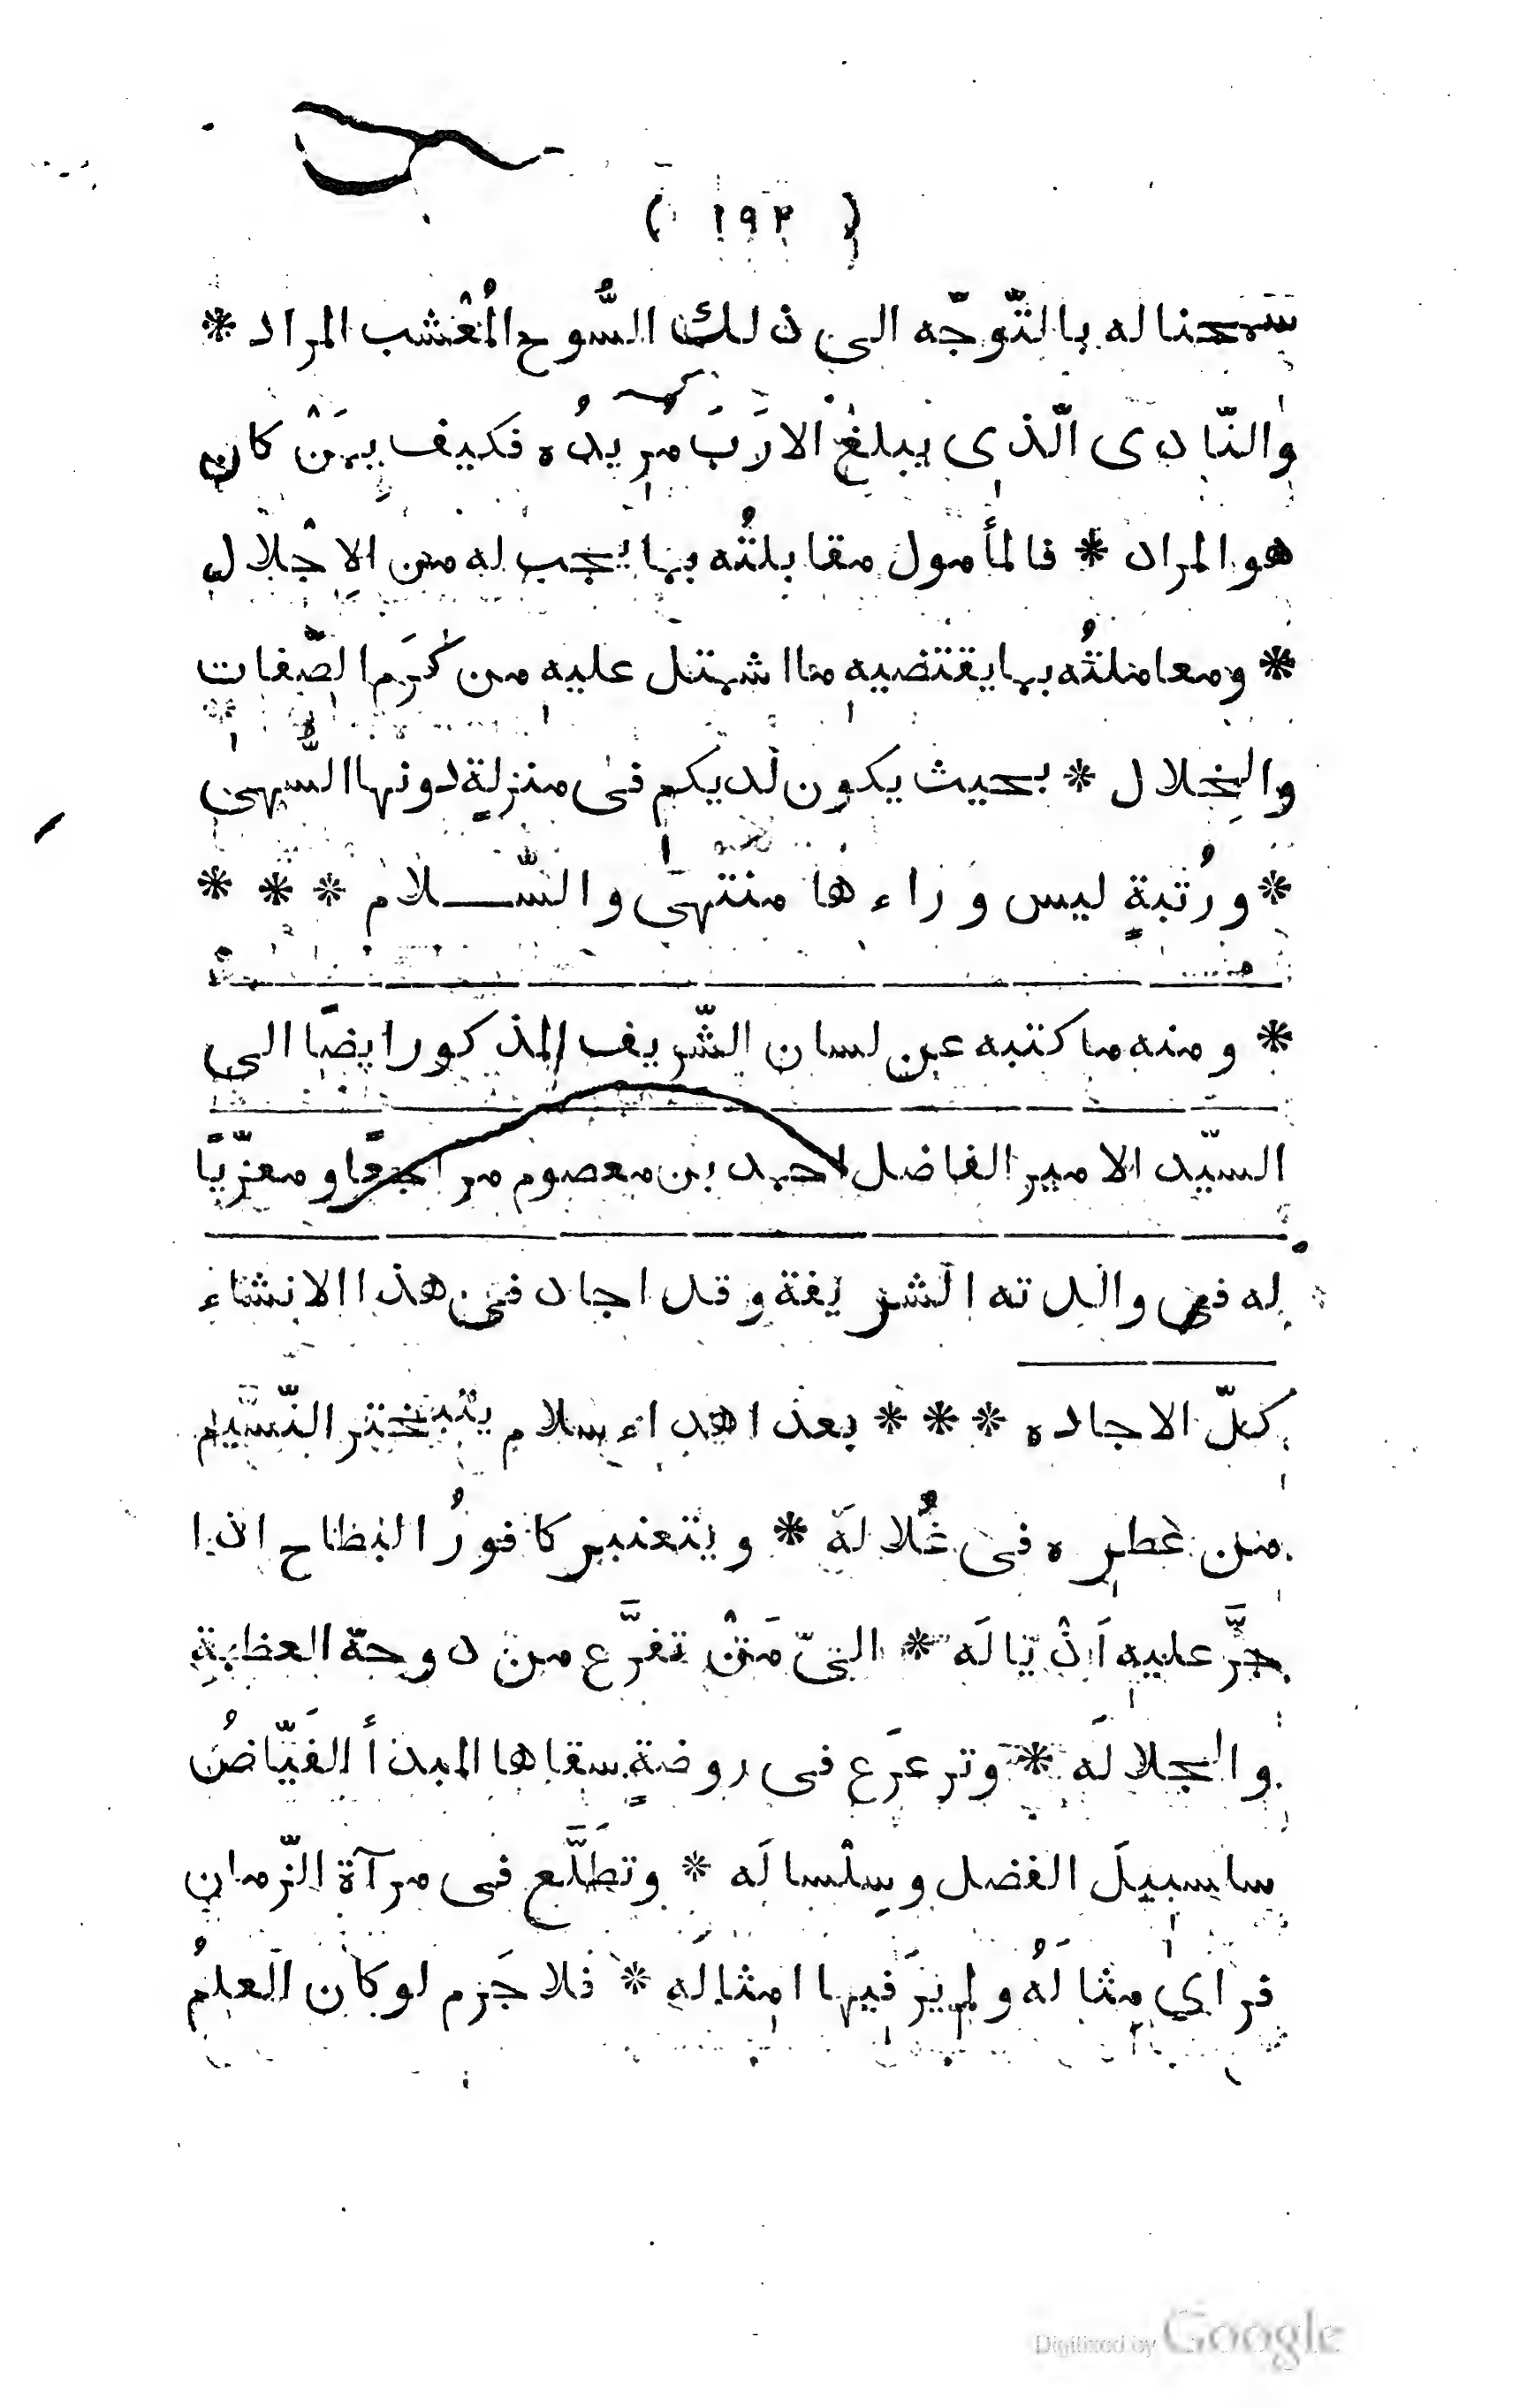 ( ١٩٣ )
سرحنا له بالتّوجّه الى ذلك السُّوح المُعْشب المراد *
والنّادى الّذى يبلغ الارَبَ مُريدُه فكيف بمَنْ كان
هو المراد * فالمأمول مقابلتُه بما يجب له من الاجْلال
* ومعاملتُه بما يقتضيه ما اشتمل عليه من كَرَم الصّفات
والخِلال * بحيث يكون لديكم فى منزلةٍ دونها السُّهى
* ورُتبةٍ ليس وراءها منتهَى والسّلام * * *
* ومنه ما كتبه عن لسان الشّريف المذكور ايضًا الى
السيّد الامير الفاضل احمد بن معصوم مراجعًا ومعزّيًا
له فى والدته الشريفة وقد اجاد فى هذا الانشاء
كلّ الاجاده * * * بعد اهداء سلام يتبختر النّسيم
من عطره فى غُلالَه * ويتعنبر كافورُ البطاح اذا
جرَّ عليه اَذْيَالَه * الىّ مَنْ تفرَّع من دوحة العظمةِ
والجلالَه * وترعرَع فى روضةٍ سقاها المبدأ الفَيّاضُ
سلسبيلَ الفضل وسِلْسالَه * وتطَلَّع فى مرآة الزّمان
فرأى مثالَهُ ولم يرَ فيها امثالَه * فلا جَرم لو كان العلمُ
Digitized by Google